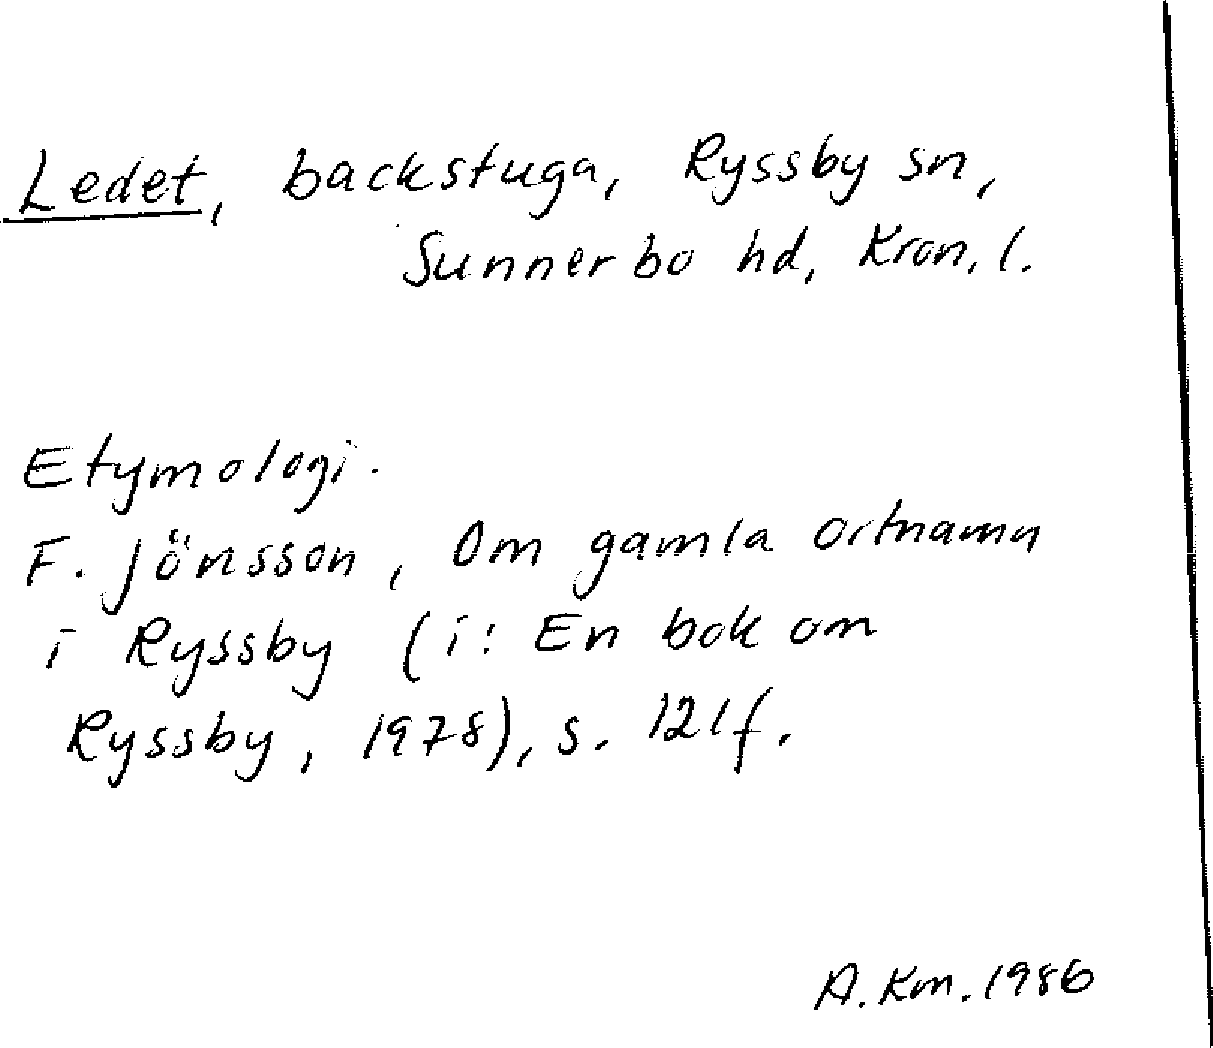 Ledet, backstuga, Ryssby sn,
Sunnerbo hd, Kron. l.
Etymologi.
F. Jönsson, Om gamla ortnamn
i Ryssby (i: En bok om
Ryssby, 1978), s. 121f.
A. Km. 1986